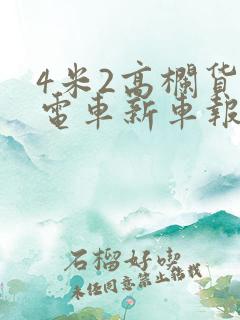 4米2高欄貨
電車新車報
石榴好喫
未任同意禁止轉載